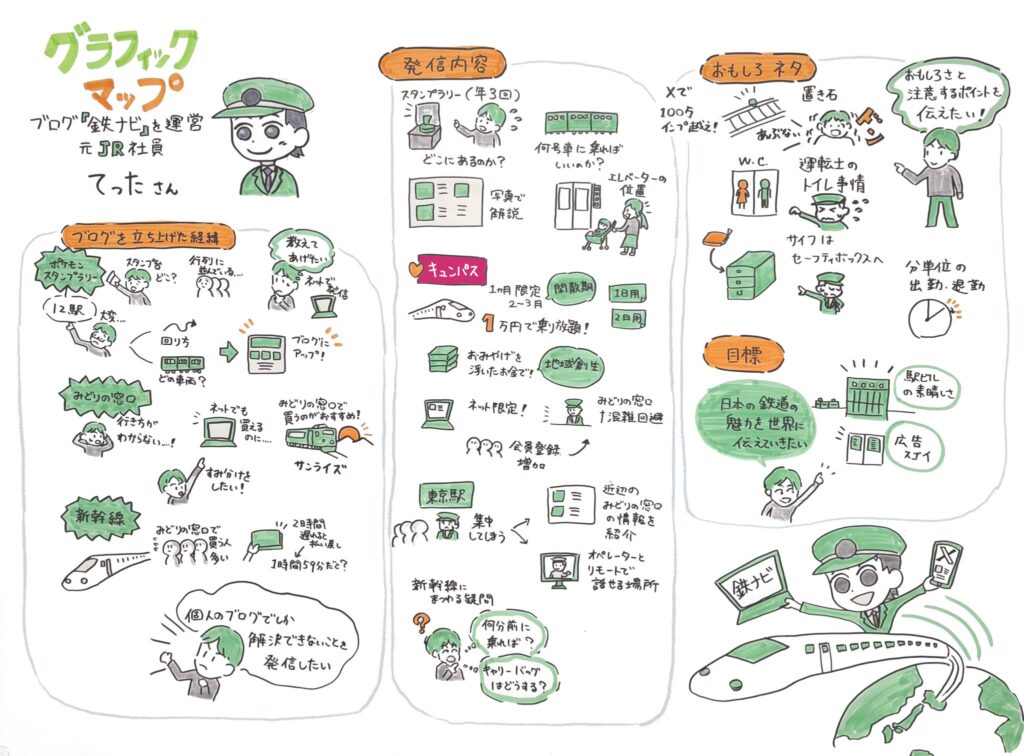 グラフィック
マップ
ブログ「鉄ナビ」を運営
元JR社員
てったさん
ブログを立ち上げた経緯
ポケモン
スタンプラリー
スタンプ台
どこ?
行列に
並んでいる…
教えて
あげたい
ネットで
発信
12駅
大変…
回り方
どの車両?
ブログに
アップ!
みどりの窓口
行き方が
わからない…!
ネットでも
買える
のに…
みどりの窓口で
買うのがおすすめ!
サンライズ
すみ分けを
したい!
新幹線
みどりの窓口で
買う人
多い
2時間
遅れると
払い戻し
1時間59分だと?
個人のブログでしか
解決できないことを
発信したい
発信内容
スタンプラリー(年3回)
どこにあるのか?
何号車に乗れば
いいのか?
写真で
解説
エレベーターの
位置
キュンパス
1ヵ月限定
2〜3月
閑散期
1日用
2日用
1万円で乗り放題!
おみやげを
浮いたお金で!
地域創生
ネット限定!
みどりの窓口
混雑回避
会員登録
増加
東京駅
集中
してしまう
近辺の
みどりの窓口
の情報を
紹介
オペレーターと
リモートで
話せる場所
新幹線に
まつわる疑問
?
何分前に
乗れば?
キャリーバッグ
はどうする?
おもしろネタ
Xで
100万
インプ越え!
置き石
あぶない
ドン
おもしろさと
注意するポイントを
伝えたい!
W.C.
運転士の
トイレ事情
サイフは
セーフティボックスへ
分単位の
出勤・退勤
目標
日本の鉄道の
魅力を世界に
伝えていきたい
駅ビル
の素晴しさ
広告
スゴイ
鉄ナビ
X